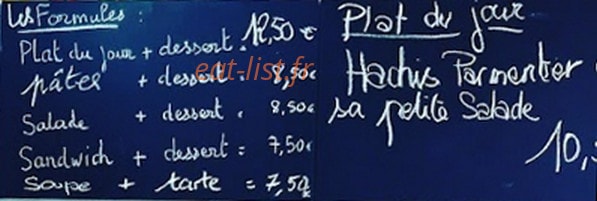 Les Formules :
Plat du jour + dessert = 12,50 €
pâtes + dessert = 8,50€
Salade + dessert = 8,50€
Sandwich + dessert = 7,50€
Soupe + tarte = 7,50€
eat-list.fr
Plat du jour
Hachis Parmentier
sa petite Salade
10,